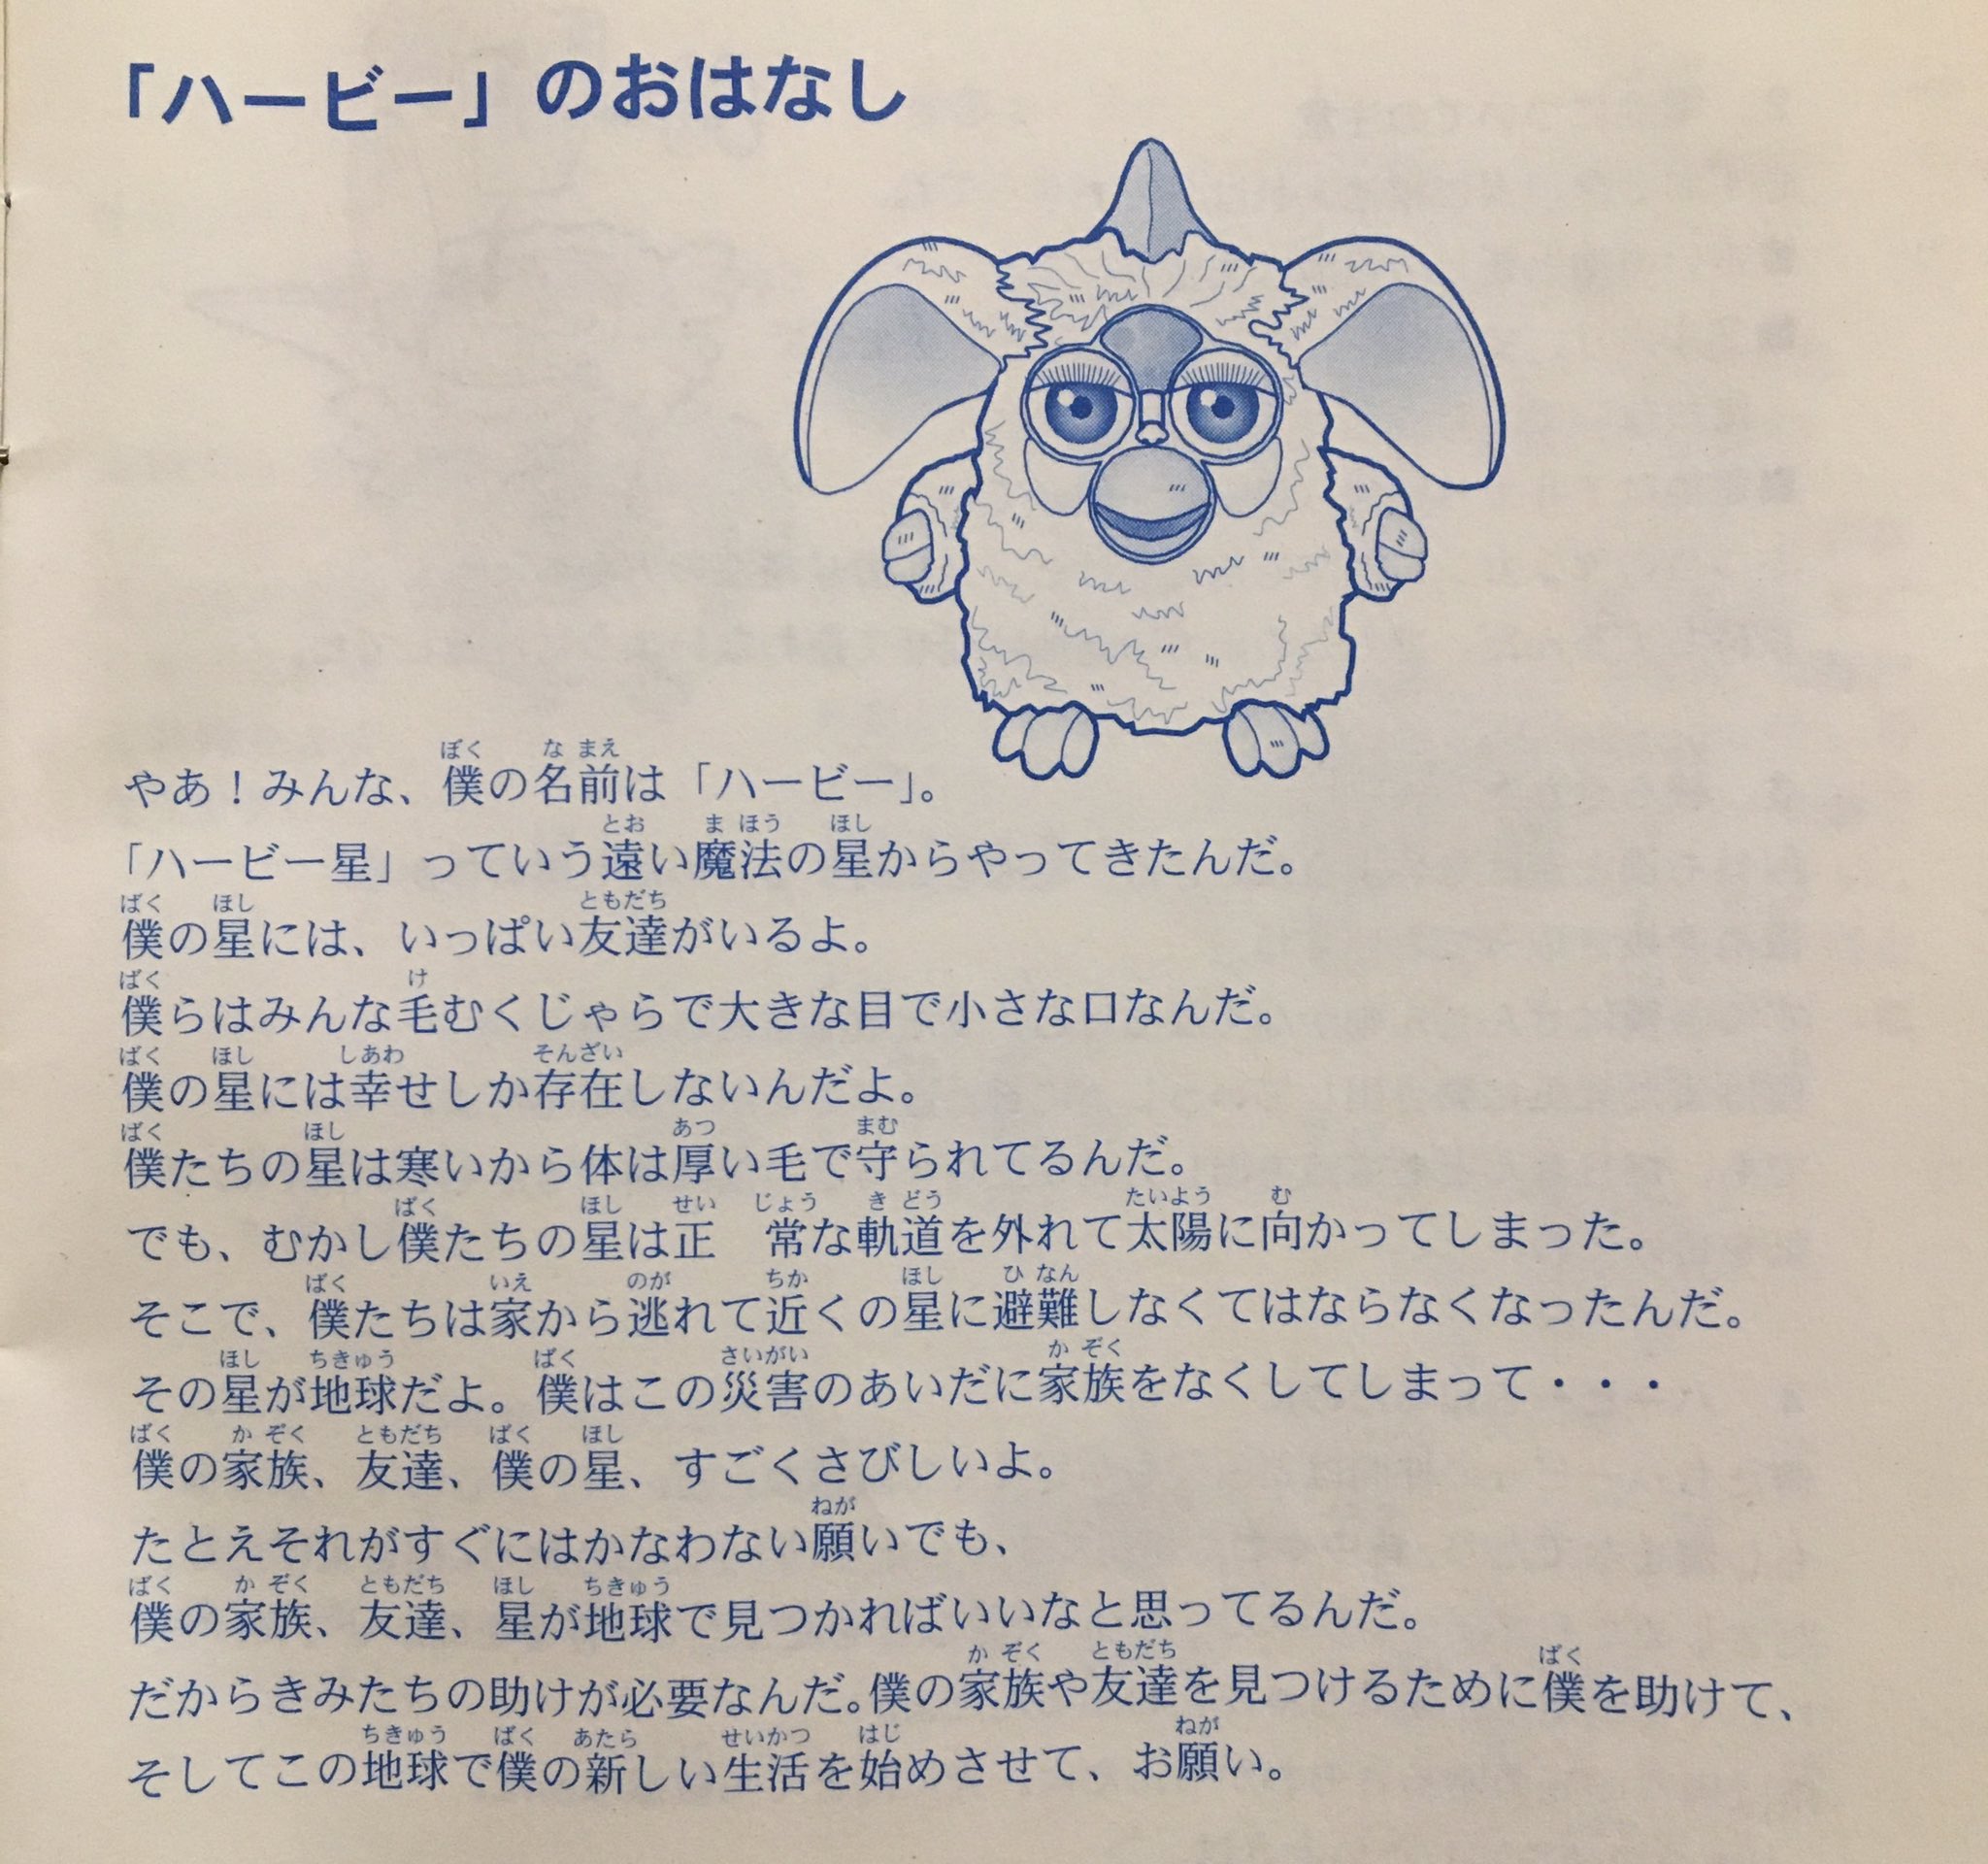 「ハービー」のおはなし
やあ！みんな、僕の名前は「ハービー」。
「ハービー星」っていう遠い魔法の星からやってきたんだ。
僕の星には、いっぱい友達がいるよ。
僕らはみんな毛むくじゃらで大きな目で小さな口なんだ。
僕の星には幸せしか存在しないんだよ。
僕たちの星は寒いから体は厚い毛で守られてるんだ。
でも、むかし僕たちの星は正常な軌道を外れて太陽に向かってしまった。
そこで、僕たちは家から逃れて近くの星に避難しなくてはならなくなったんだ。
その星が地球だよ。僕はこの災害のあいだに家族をなくしてしまって・・・
僕の家族、友達、僕の星、すごくさびしいよ。
たとえそれがすぐにはかなわない願いでも、
僕の家族、友達、星が地球で見つかればいいなと思ってるんだ。
だからきみたちの助けが必要なんだ。僕の家族や友達を見つけるために僕を助けて、
そしてこの地球で僕の新しい生活を始めさせて、お願い。